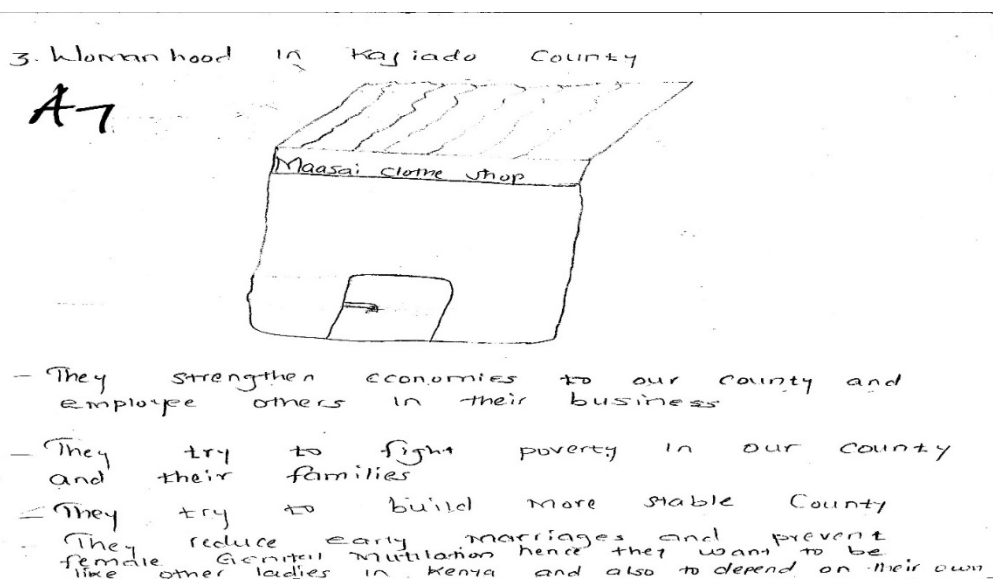 3. Womanhood in Kajiado County
A7
Maasai clothe shop
- They strengthen economies to our county and
employee others in their business
- They try to fight poverty in our county
and their families
- They try to build more stable County
They reduce early marriages and prevent
female Genitell Mutilation hence they want to be
like other ladies in Kenya and also to depend on their own